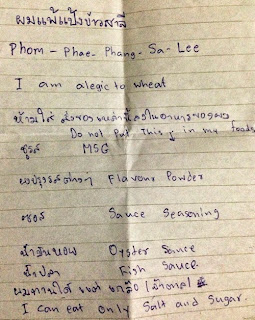 ผมแพ้แป้งข้าวสาลี
Phom - Phae - Phang - Sa - Lee
I am alegic to wheat
ห้ามใส่ สิ่งของเหล่านี้ลงในอาหารของผม
Do not Put This in my foods
ชูรส MSG
ผงปรุงรสต่างๆ Flavour Powder
ซอส Sauce Seasoning
น้ำมันหอย Oyster Sauce
น้ำปลา Fish Sauce
ผมทานได้ แค่ เกลือ/น้ำตาล
I can eat only Salt and Sugar